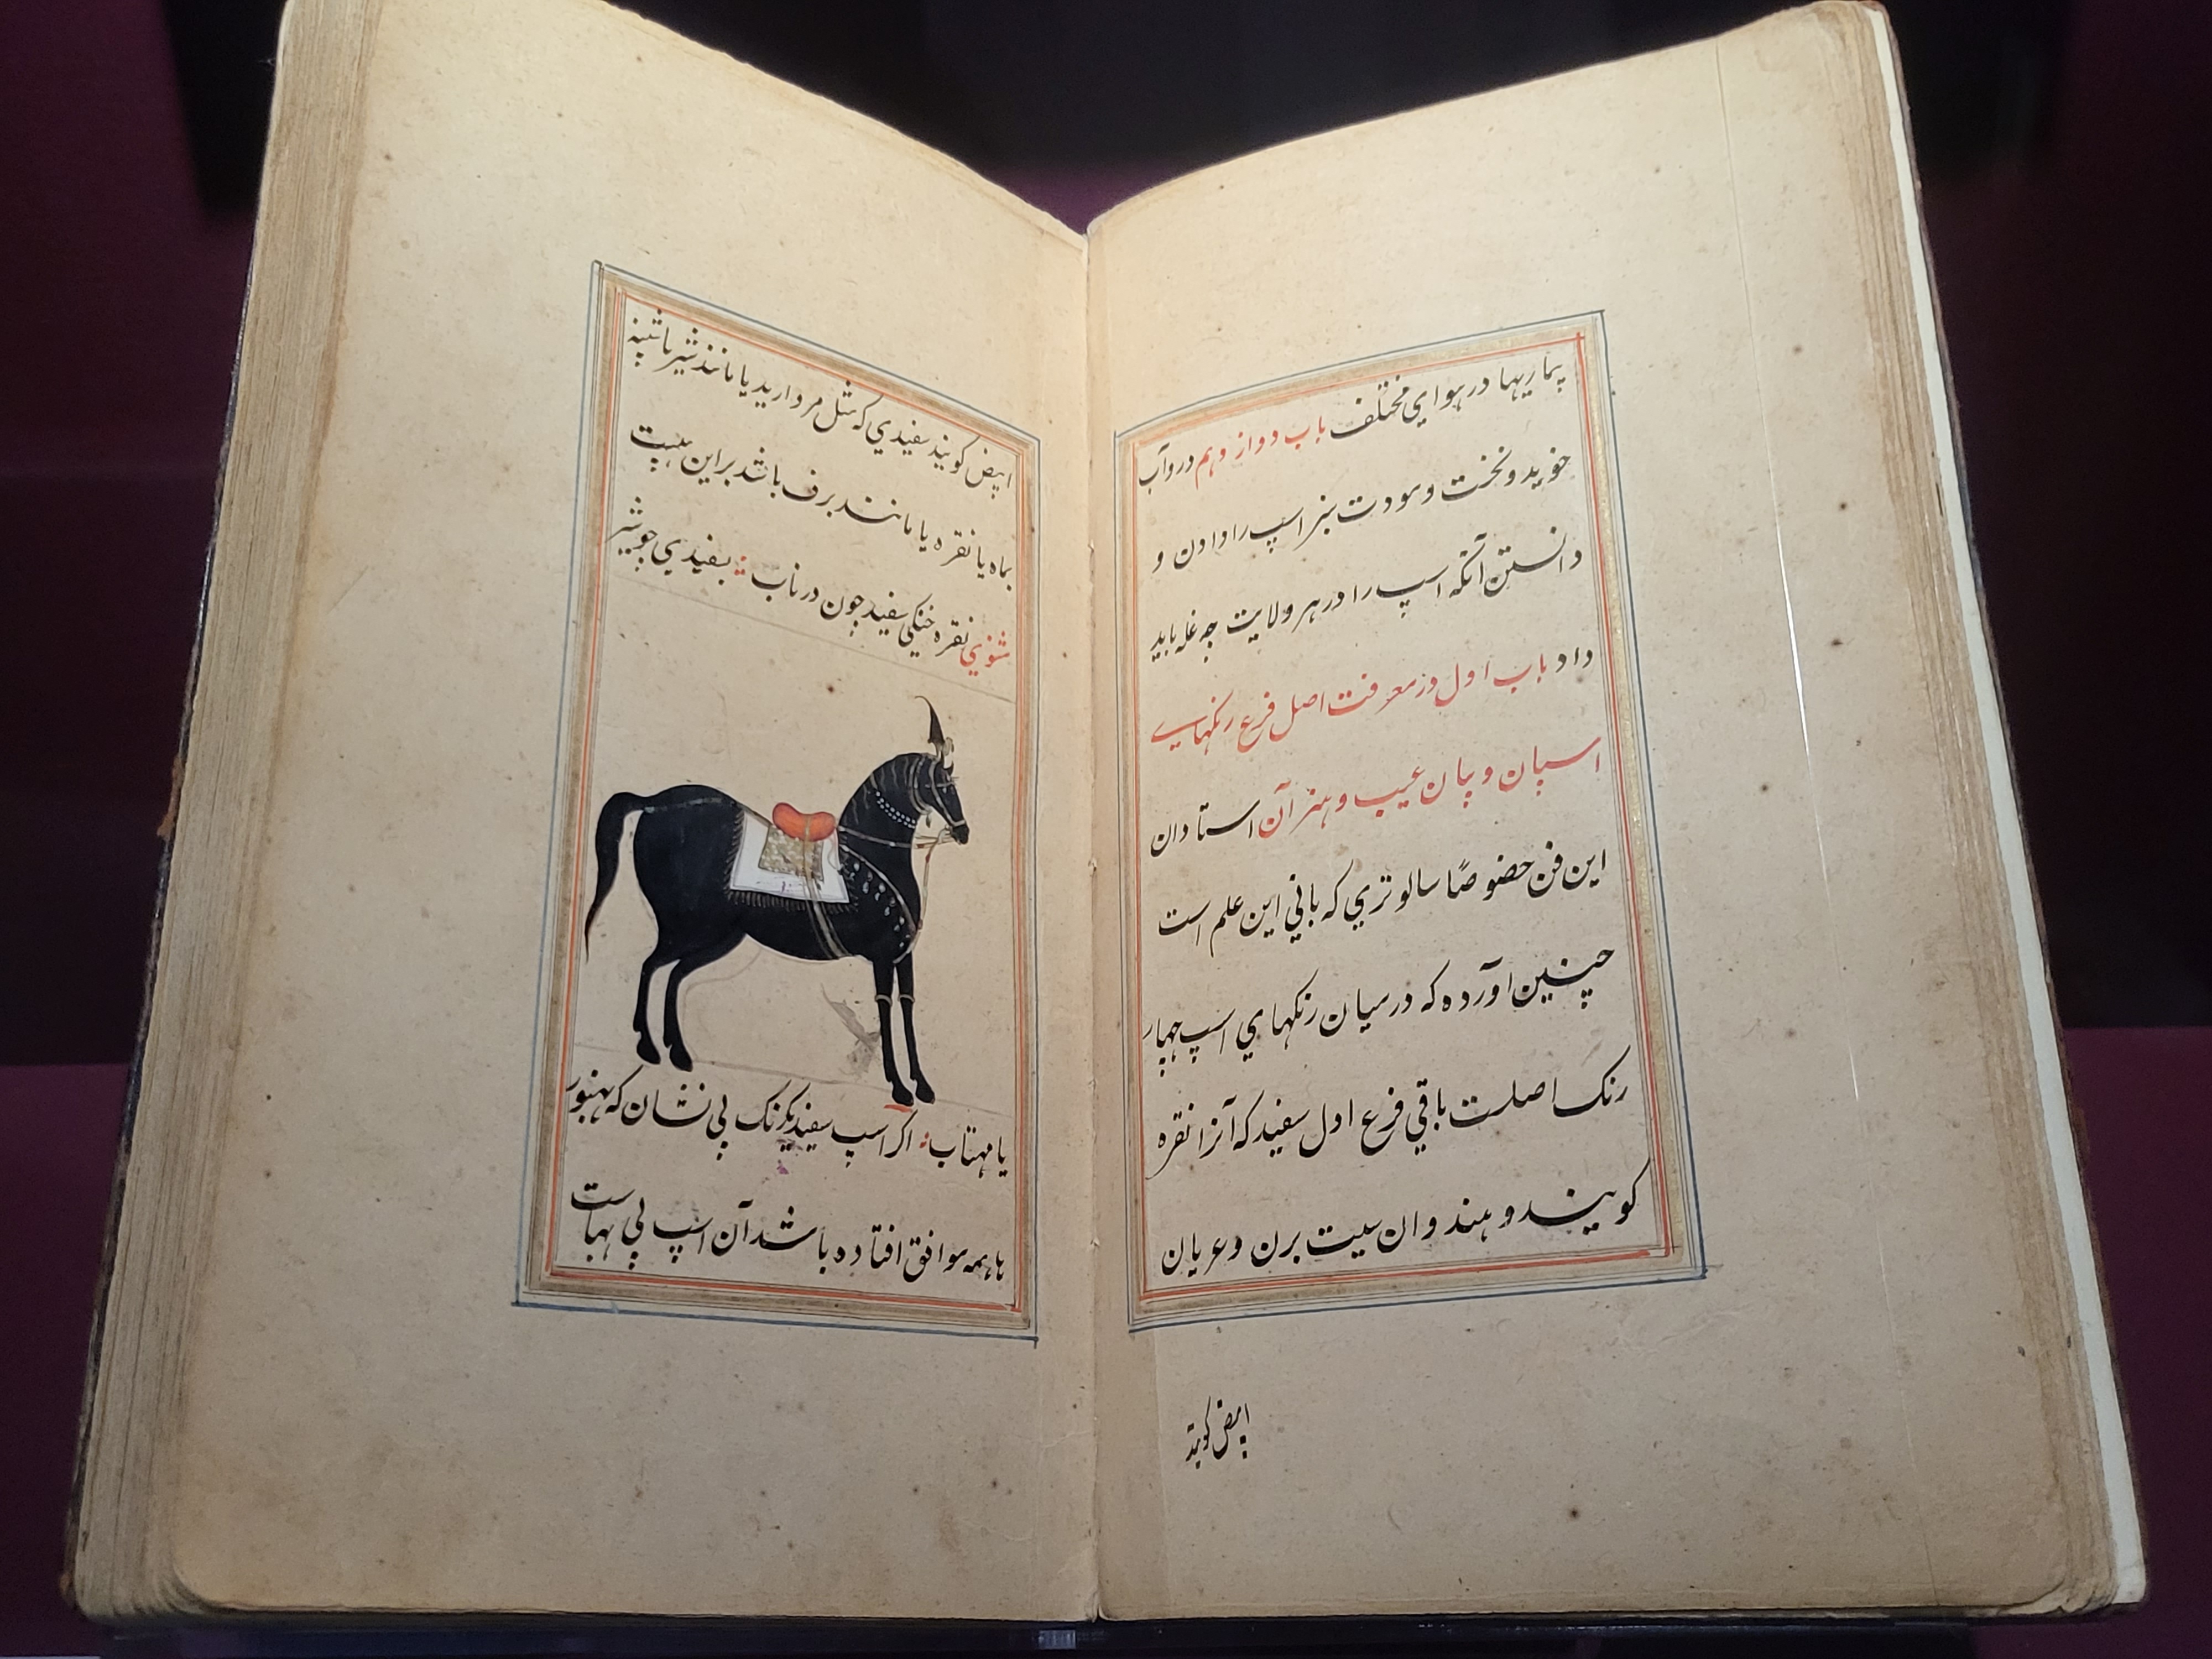 بیماریها در هوای مختلف باب دوازدهم در وآب
خوید و نخشت و مودت سبز اسپ را دادن و
دانستن آنکه اسپ را در هر ولایت چه غله باید
داد باب اول در معرفت اصل فرع رنکهاے
اسپان و بیان عیب و هنر آن استادان
این فن خصوصًا سالوتری که بانی این علم است
چنین آورده که در میان رنکهای اسپ چهار
رنک اصلست باقی فرع اول سفید که آنرا نقره
کویند و هندوان سیت برن و عربان
ابیض کویند
ابیض کویند سفیدی که مثل مروارید یا مانند شیر یا پنبه
یا ماه یا نقره یا مانند برف باشد براین هیئت
مثنوی نقره خنکی سفید چون در ناب سفیدی چو شیر
یا مهتاب اکر اسپ سفید یکرنک بی نشان که بهنور
ها همه موافق افتاده باشد آن اسپ بی بهاست